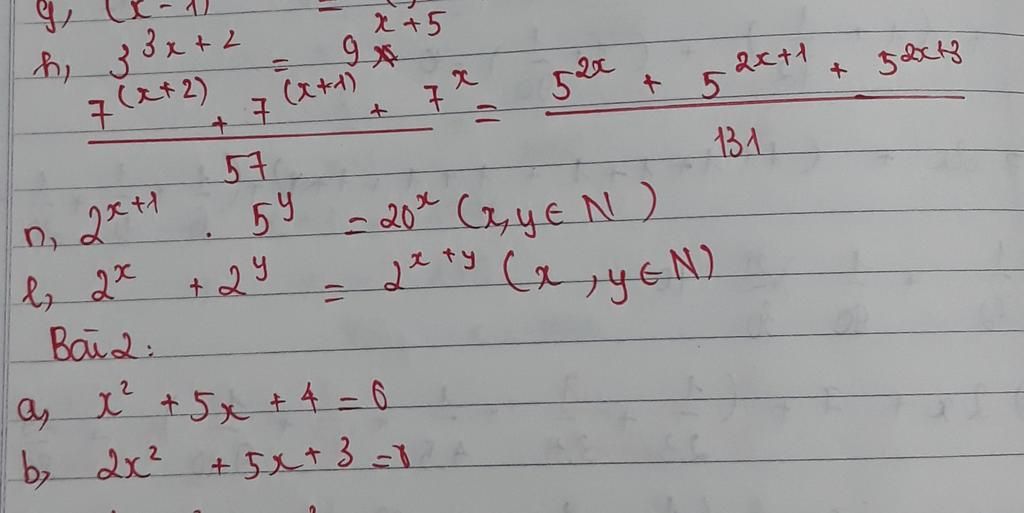 g, (x - 1) =
h, 3^(3x + 2) = 9^(x + 5)
(7^(x+2) + 7^(x+1) + 7^x) / 57 = (5^(2x) + 5^(2x+1) + 5^(2x+3)) / 131
n, 2^(x+1) . 5^y = 20^x (x, y ∈ N)
l, 2^x + 2^y = 2^(x + y) (x, y ∈ N)
Bài 2:
a, x² + 5x + 4 = 6
b, 2x² + 5x + 3 =